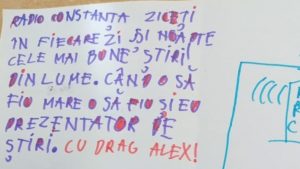 RADIO CONSTANȚA ZICEȚI
ÎN FIECARE ZI ȘI NOAPTE
CELE MAI BUNE ȘTIRI
DIN LUME. CÂND O SĂ
FIU MARE O SĂ FIU ȘI EU
PREZENTATOR DE
ȘTIRI. CU DRAG ALEX!